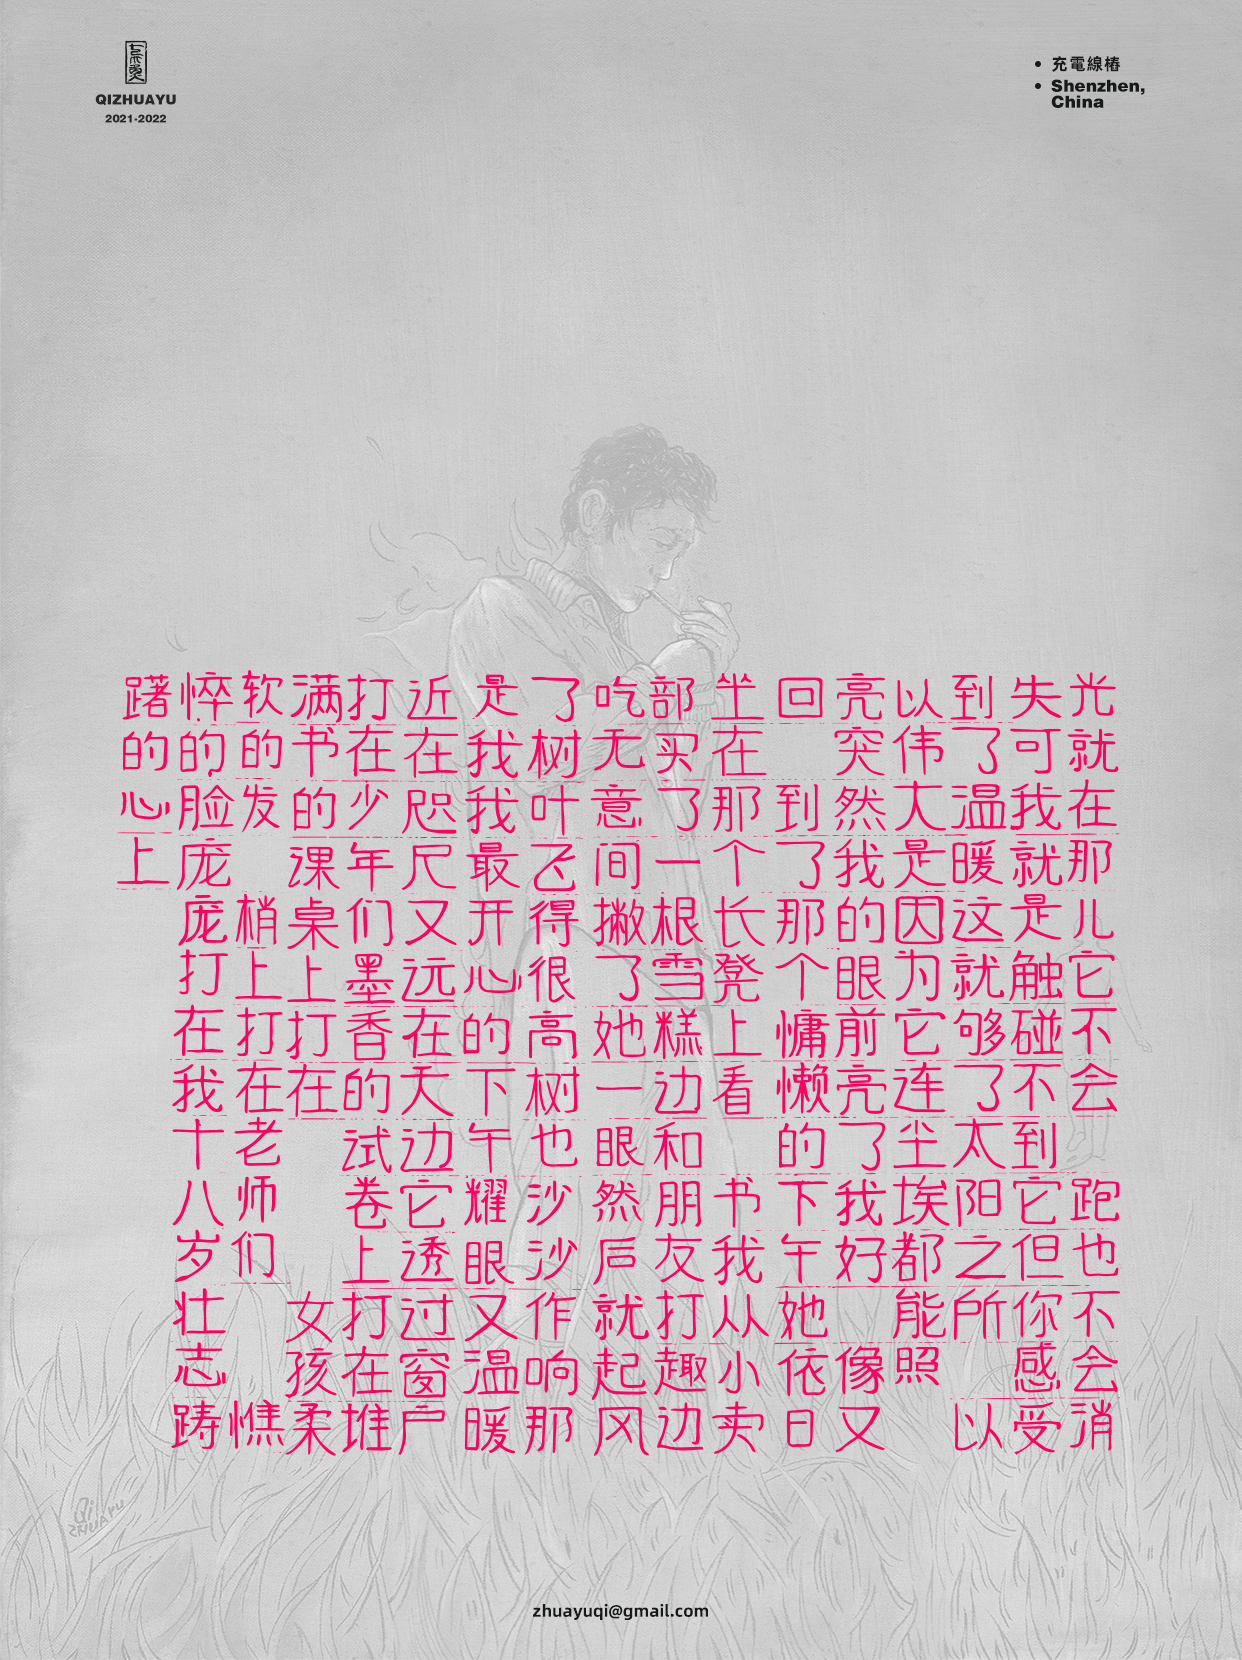 QIZHUAYU
2021-2022
充電線樁
Shenzhen,
China
光就在那儿它不会 跑也不会消
失可我就是触碰不到它但你感受
到了温暖这就够了太阳之所 以
以伟大是因为它连尘埃都能照
亮突然我的眼前亮了我好 像又
回 到了那个慵懒的下午她依日
坐在那个长凳上看 书我从小卖
部买了一根雪糕边和朋友打趣边
吃无意间撇了她一眼然后就起风
了树叶飞得很高树也沙沙作响那
是我我最开心的下午耀眼又温暖
近在咫尺又远在天边它透过窗户
打在少年们墨香的试卷上打在堆
满书的课桌上打在 女孩柔
软的发 梢上打在老师们 憔
悴的脸庞庞打在我十八岁壮志踌
躇的心上
Qi
ZHUAYU
zhuayuqi@gmail.com